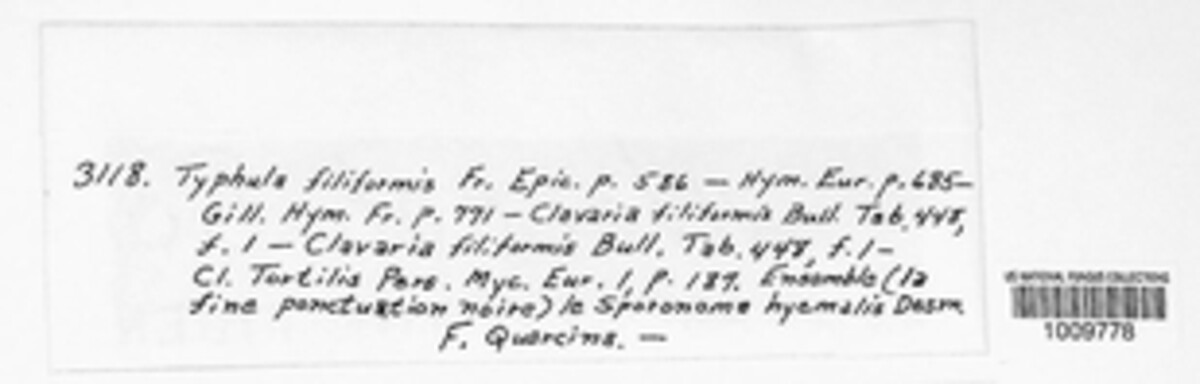 3118. Typhula filiformis Fr. Epic. p. 586 — Hym. Eur. p. 685 —
Gill. Hym. Fr. p. 771 — Clavaria filiformis Bull. Tab. 448,
f. 1 — Clavaria filiformis Bull. Tab. 448, f. 1 —
Cl. Tortilis Pers. Myc. Eur. 1, p. 189. Ensemble (la
fine ponctuation noire) le Sporonome hyemalis Desm.
F. Quercina. —
US NATIONAL FUNGUS COLLECTIONS
1009778